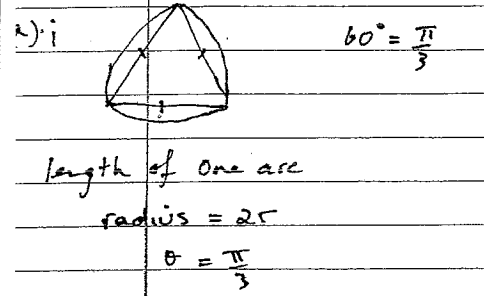 a) i
60° = π/3
length of one arc
radius = 2r
θ = π/3